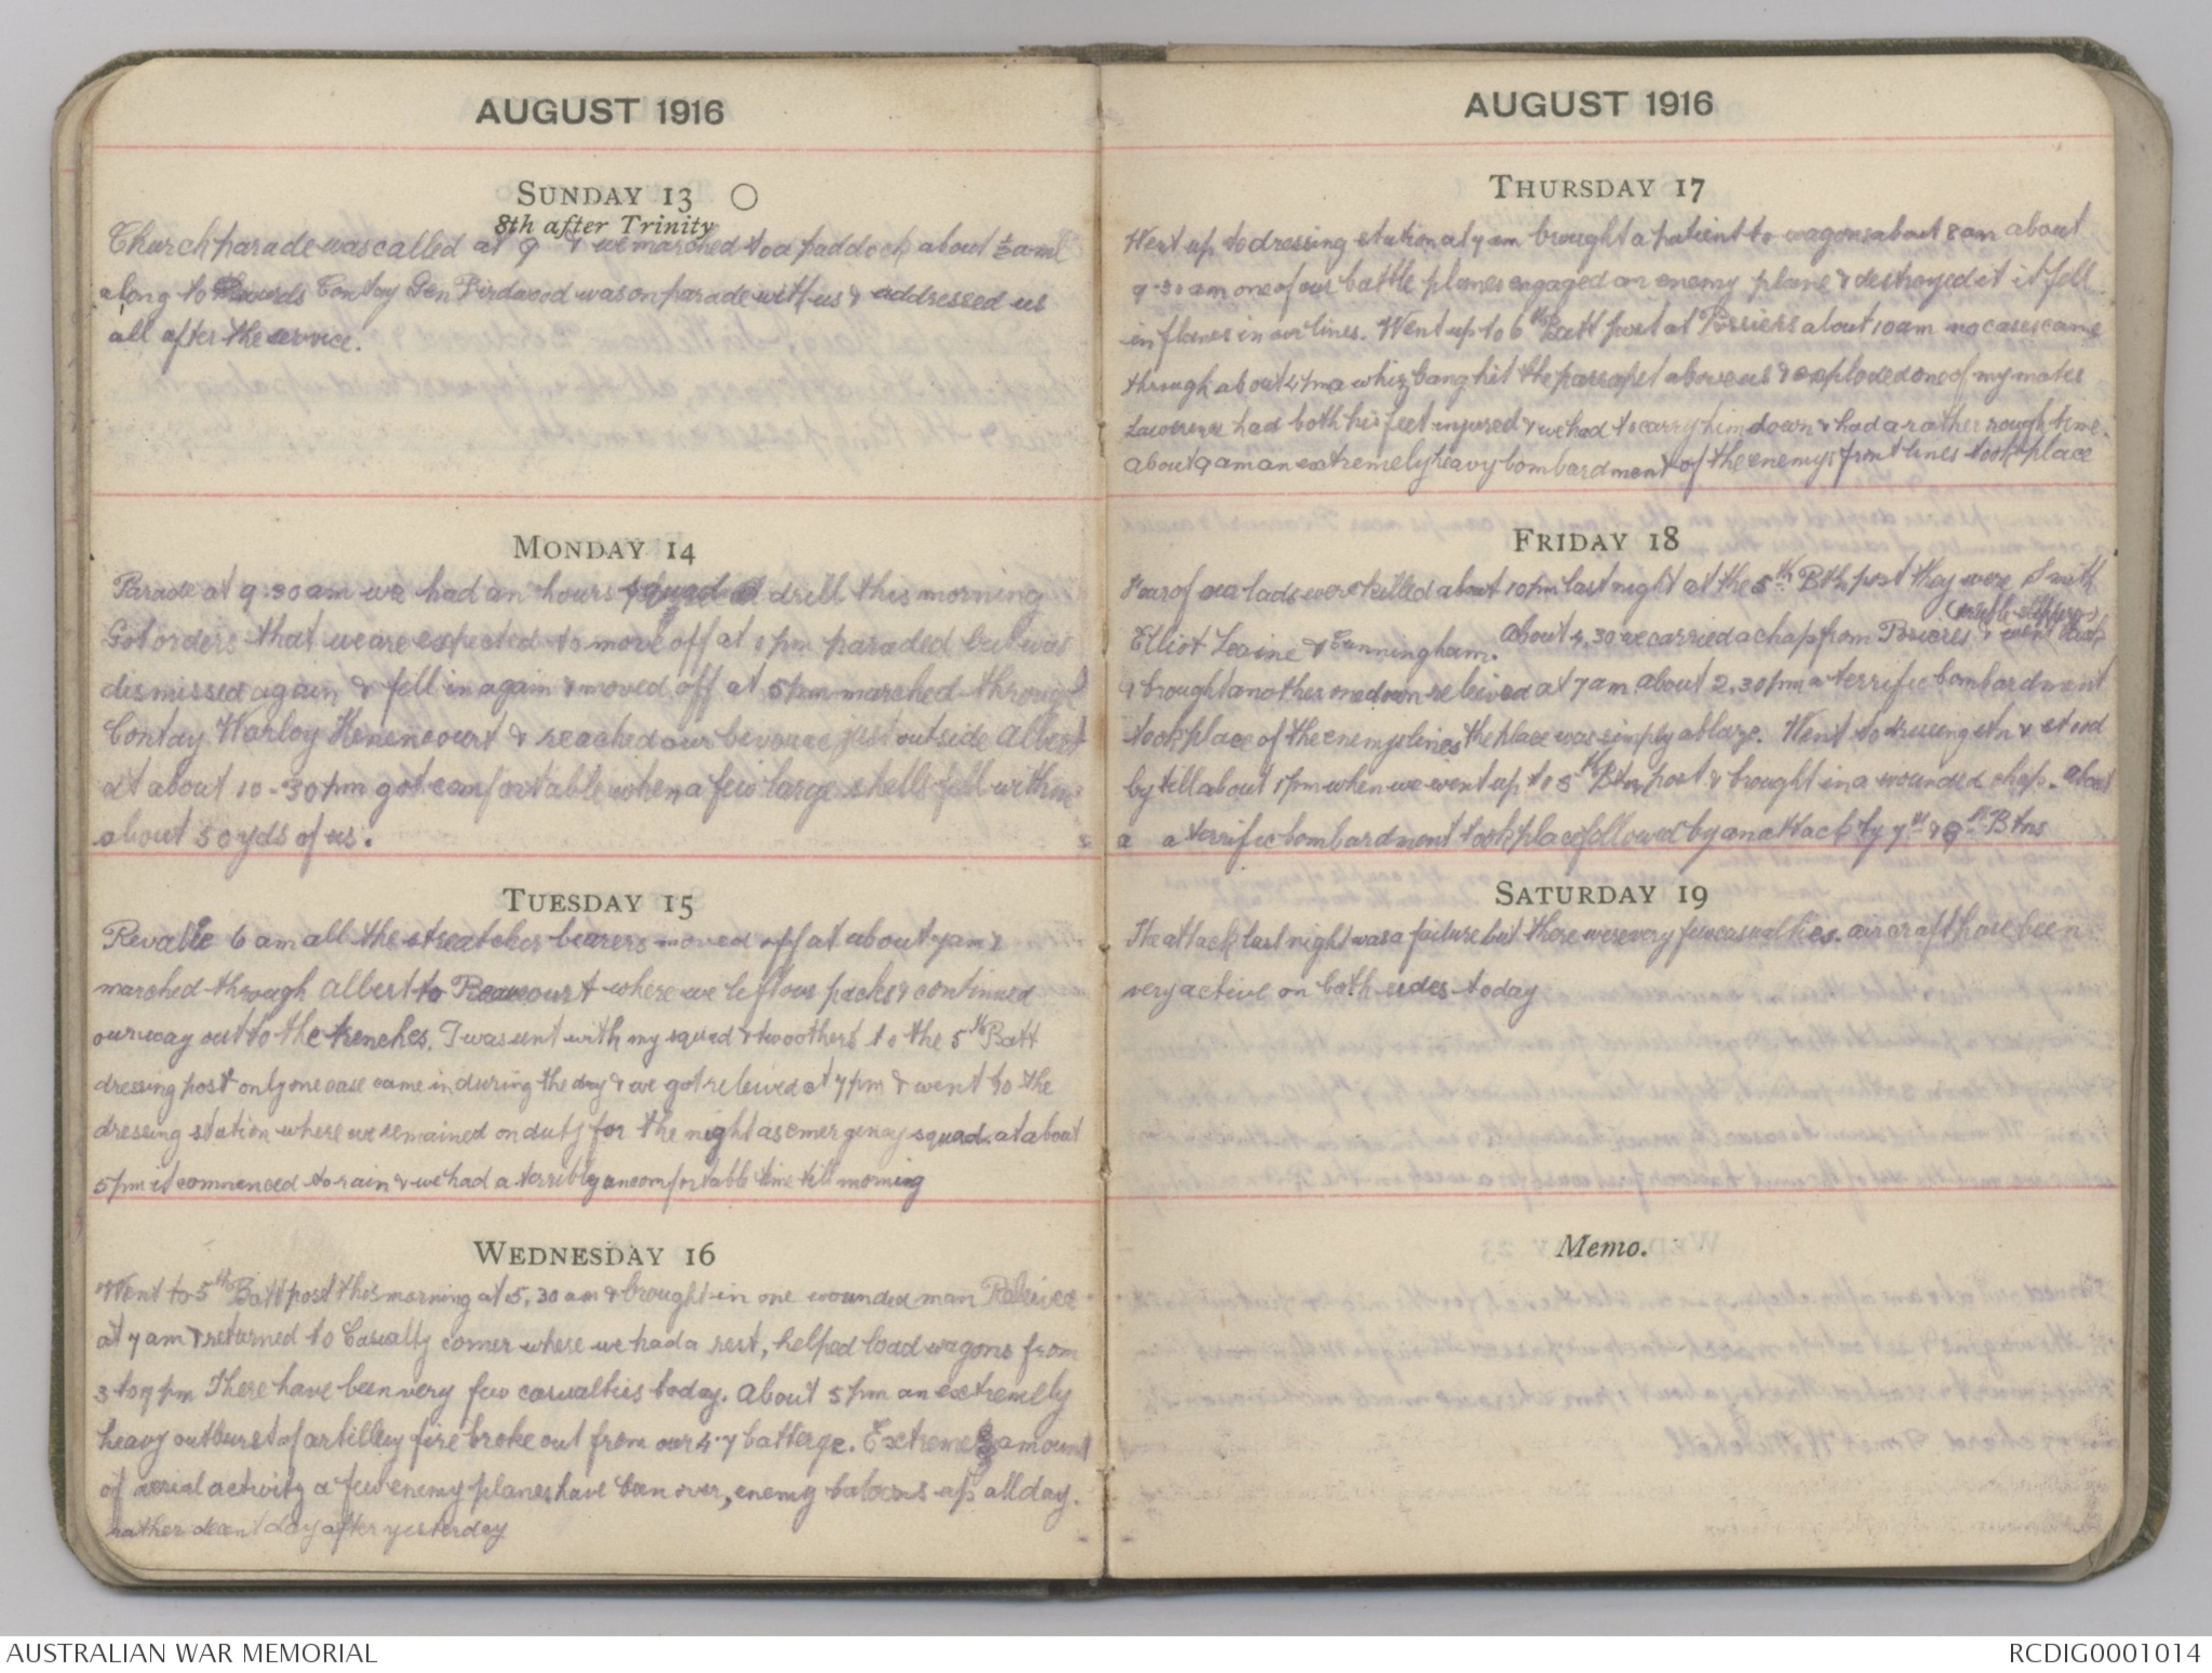 AUGUST 1916
SUNDAY 13
8th after Trinity
Church parade was called at 9 & we marched to a paddock about ½ a ml
along to Contay Gen Birdwood was on parade with us & addressed us
all after the service.
MONDAY 14
Parade at 9.30 am we had an hours squad drill this morning
Got orders that we are expected to move off at 1 pm paraded but was
dismissed again & fell in again & moved off at 5 pm marched through
Contay Warloy Henencourt & reached our bivouac just outside Albert
at about 10-30 pm got comfortable when a few large shells fell within
about 50 yds of us.
TUESDAY 15
Revallie 6 am all the streatcher bearers moved off at about 7 am &
marched through Albert to Becourt where we left our packs & continued
our way out to the trenches. I was sent with my squad & two others to the 5th Batt
dressing post only one case came in during the day & we got releived at 7 pm & went to the
dressing station where we remained on duty for the night as emergency squad. at about
5 pm it commenced to rain & we had a terribly uncomfortable time till morning
WEDNESDAY 16
Went to 5th Batt post this morning at 5.30 am & brought in one wounded man
at 7 am & returned to Casualty corner where we had a rest, helped load wagons from
3 to 7 pm There have been very few casualties today. About 5 pm an extremely
heavy outburst of artillery fire broke out from our 4.7 batterys. Extreme amount
of aerial activity a few enemy planes have been over, enemy baloons up all day.
rather decent day after yesterday
AUGUST 1916
THURSDAY 17
Went up to dressing station at 7 am brought a patient to wagons about 8 am about
9-30 am one of our battle planes engaged an enemy plane & destroyed it it fell
in flames in our lines. Went up to 6th Batt post at Possiers about 10 am no cases came
through about 4 pm a whizbang hit the parrapet above us & exploded one of my mates
Lawrence had both his feet injured & we had to carry him down & had a rather rough time.
about 9 am an extremely heavy bombardment of the enemys front lines took place
FRIDAY 18
Four of our lads were killed about 10 pm last night at the 5th Bth post they were Smith
Elliot Levine & Cunningham. About 4.30 we carried a chap from Posieres & went back
& brought another one down releived at 7 am. about 2.30 pm a terrific bombardment
took place of the enemys lines the place was simply ablaze. Went to dressing stn & stood
by till about 1 pm when we went up to 5th Btn post & brought in a wounded chap. about
a a terrific bombardment took place followed by an attack by 7th & 8th Btns
SATURDAY 19
The attack last night was a failure but there were very few casualties. aircraft have been
very active on both sides today
Memo.
AUSTRALIAN WAR MEMORIAL
RCDIG0001014